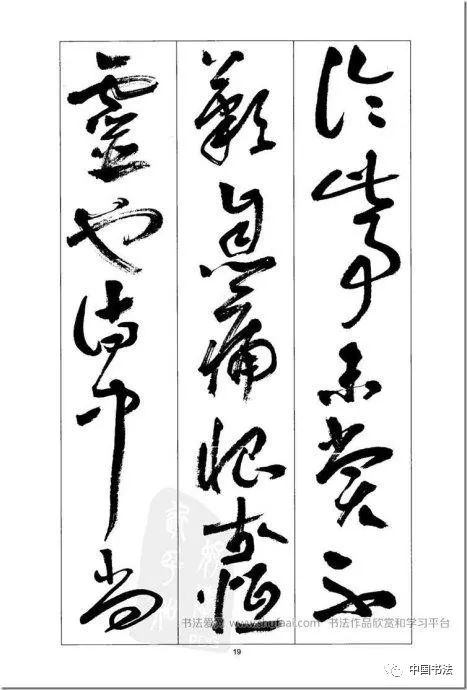 論此事未嘗不
歎息痛恨於桓
靈也侍中尚
www.shufaai.com 书法作品欣赏和学习平台
19
中国书法